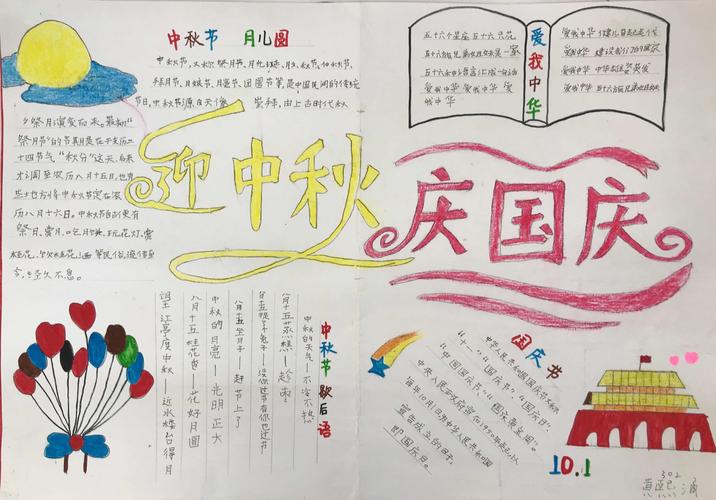 中秋节 月儿圆
中秋节，又称祭月节、月光诞、月夕、秋节、仲秋节、
拜月节、月娘节、月亮节、团圆节等，是中国民间的传统
节日。中秋节源自天象 崇拜，由上古时代秋
夕祭月演变而来。最初"
祭月节"的节期是在干支历二
十四节气"秋分"这天，后来
才调至农历八月十五日，也有
些地方将中秋节定在农
历八月十六日。中秋节自古便有
祭月、赏月、吃月饼、玩花灯、赏
桂花、饮桂花酒等民俗，流传至
今，经久不息。
迎中秋
庆国庆
爱我中华
五十六个星座五十六只花
五十六族兄弟姐妹是一家
五十六种语言汇成一句话
爱我中华 爱我中华 爱
我中华
爱我中华
爱我中华
爱我中华
中秋节歇后语
中秋节的天气——不冷不热
八月十五蒸糕——趁雨
八月十五坐月子——赶节上了
中秋的月亮——光明正大
八月十五桂花香——花好月圆
望江亭度中秋——近水楼台得月
国庆节
中华人民共和国国庆节又称
"十一"、"国庆节"、"国庆日"、
"中国国庆节"、"国庆黄金周"。
中央人民政府宣布1950年起，以
每年10月1日，即中华人民共和国
宣告成立的日子，
即国庆日。
10.1
302